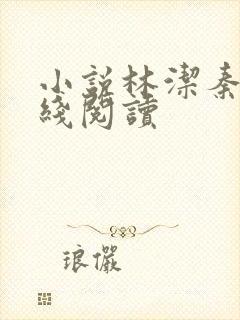 小說林潔秦
綫閱讀
琅儼